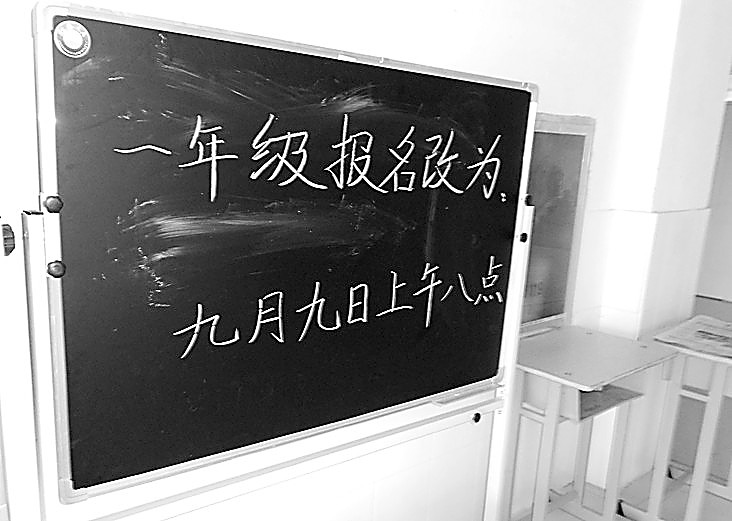 一年级报名改为:
九月九日上午八点